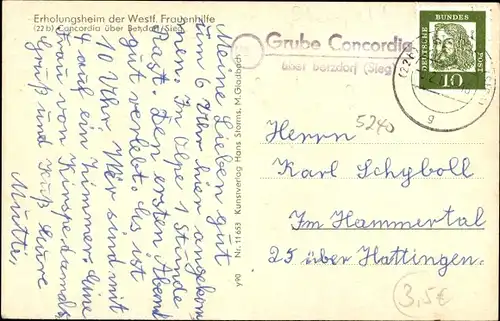 Erholungsheim der Westf. Frauenhilfe
(22 b) Concordia über Betzdorf/Sieg
Meine Lieben gut
um 6 Uhr hier angekom
men. In Olpe 1 Stunde
Rast. Den ersten Abend
gut verlebt. Es ist
10 Uhr. Wir sind mit
4 auf ein Zimmer. Eine
Frau von
Gruß und Kuß Eure
Mutter,
y90 Nr. 11 653 Kunstverlag Hans Storms, M.Gladbach
Grube Concordia
über Betzdorf (Sieg)
DEUTSCHE
BUNDES
POST
10
g
5240
Herrn
Karl Schyboll
Im Hammertal
25 über Hattingen.
3,5€